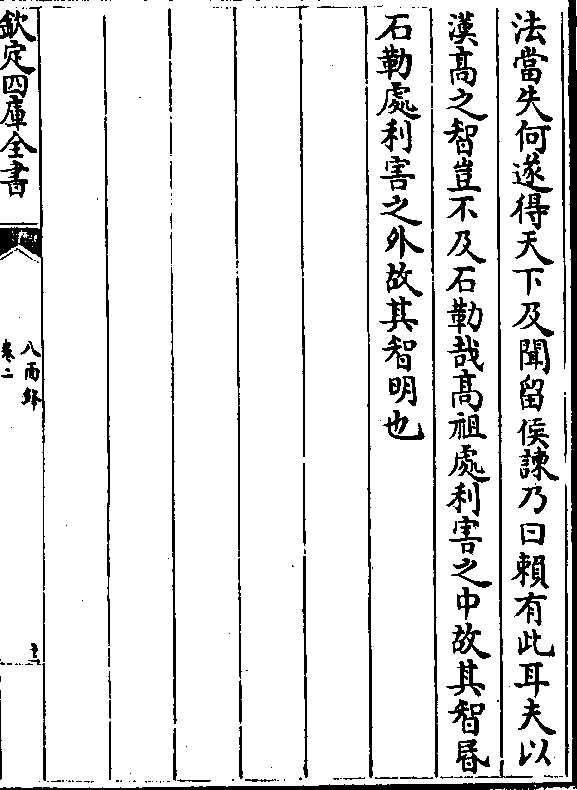 法當失何遂得天下及聞留侯諫乃曰賴有此耳夫以
漢髙之智豈不及石勒哉髙祖處利害之中故其智昬
石勒處利害之外故其智明也
欽定四庫全書
八面鋒
卷二